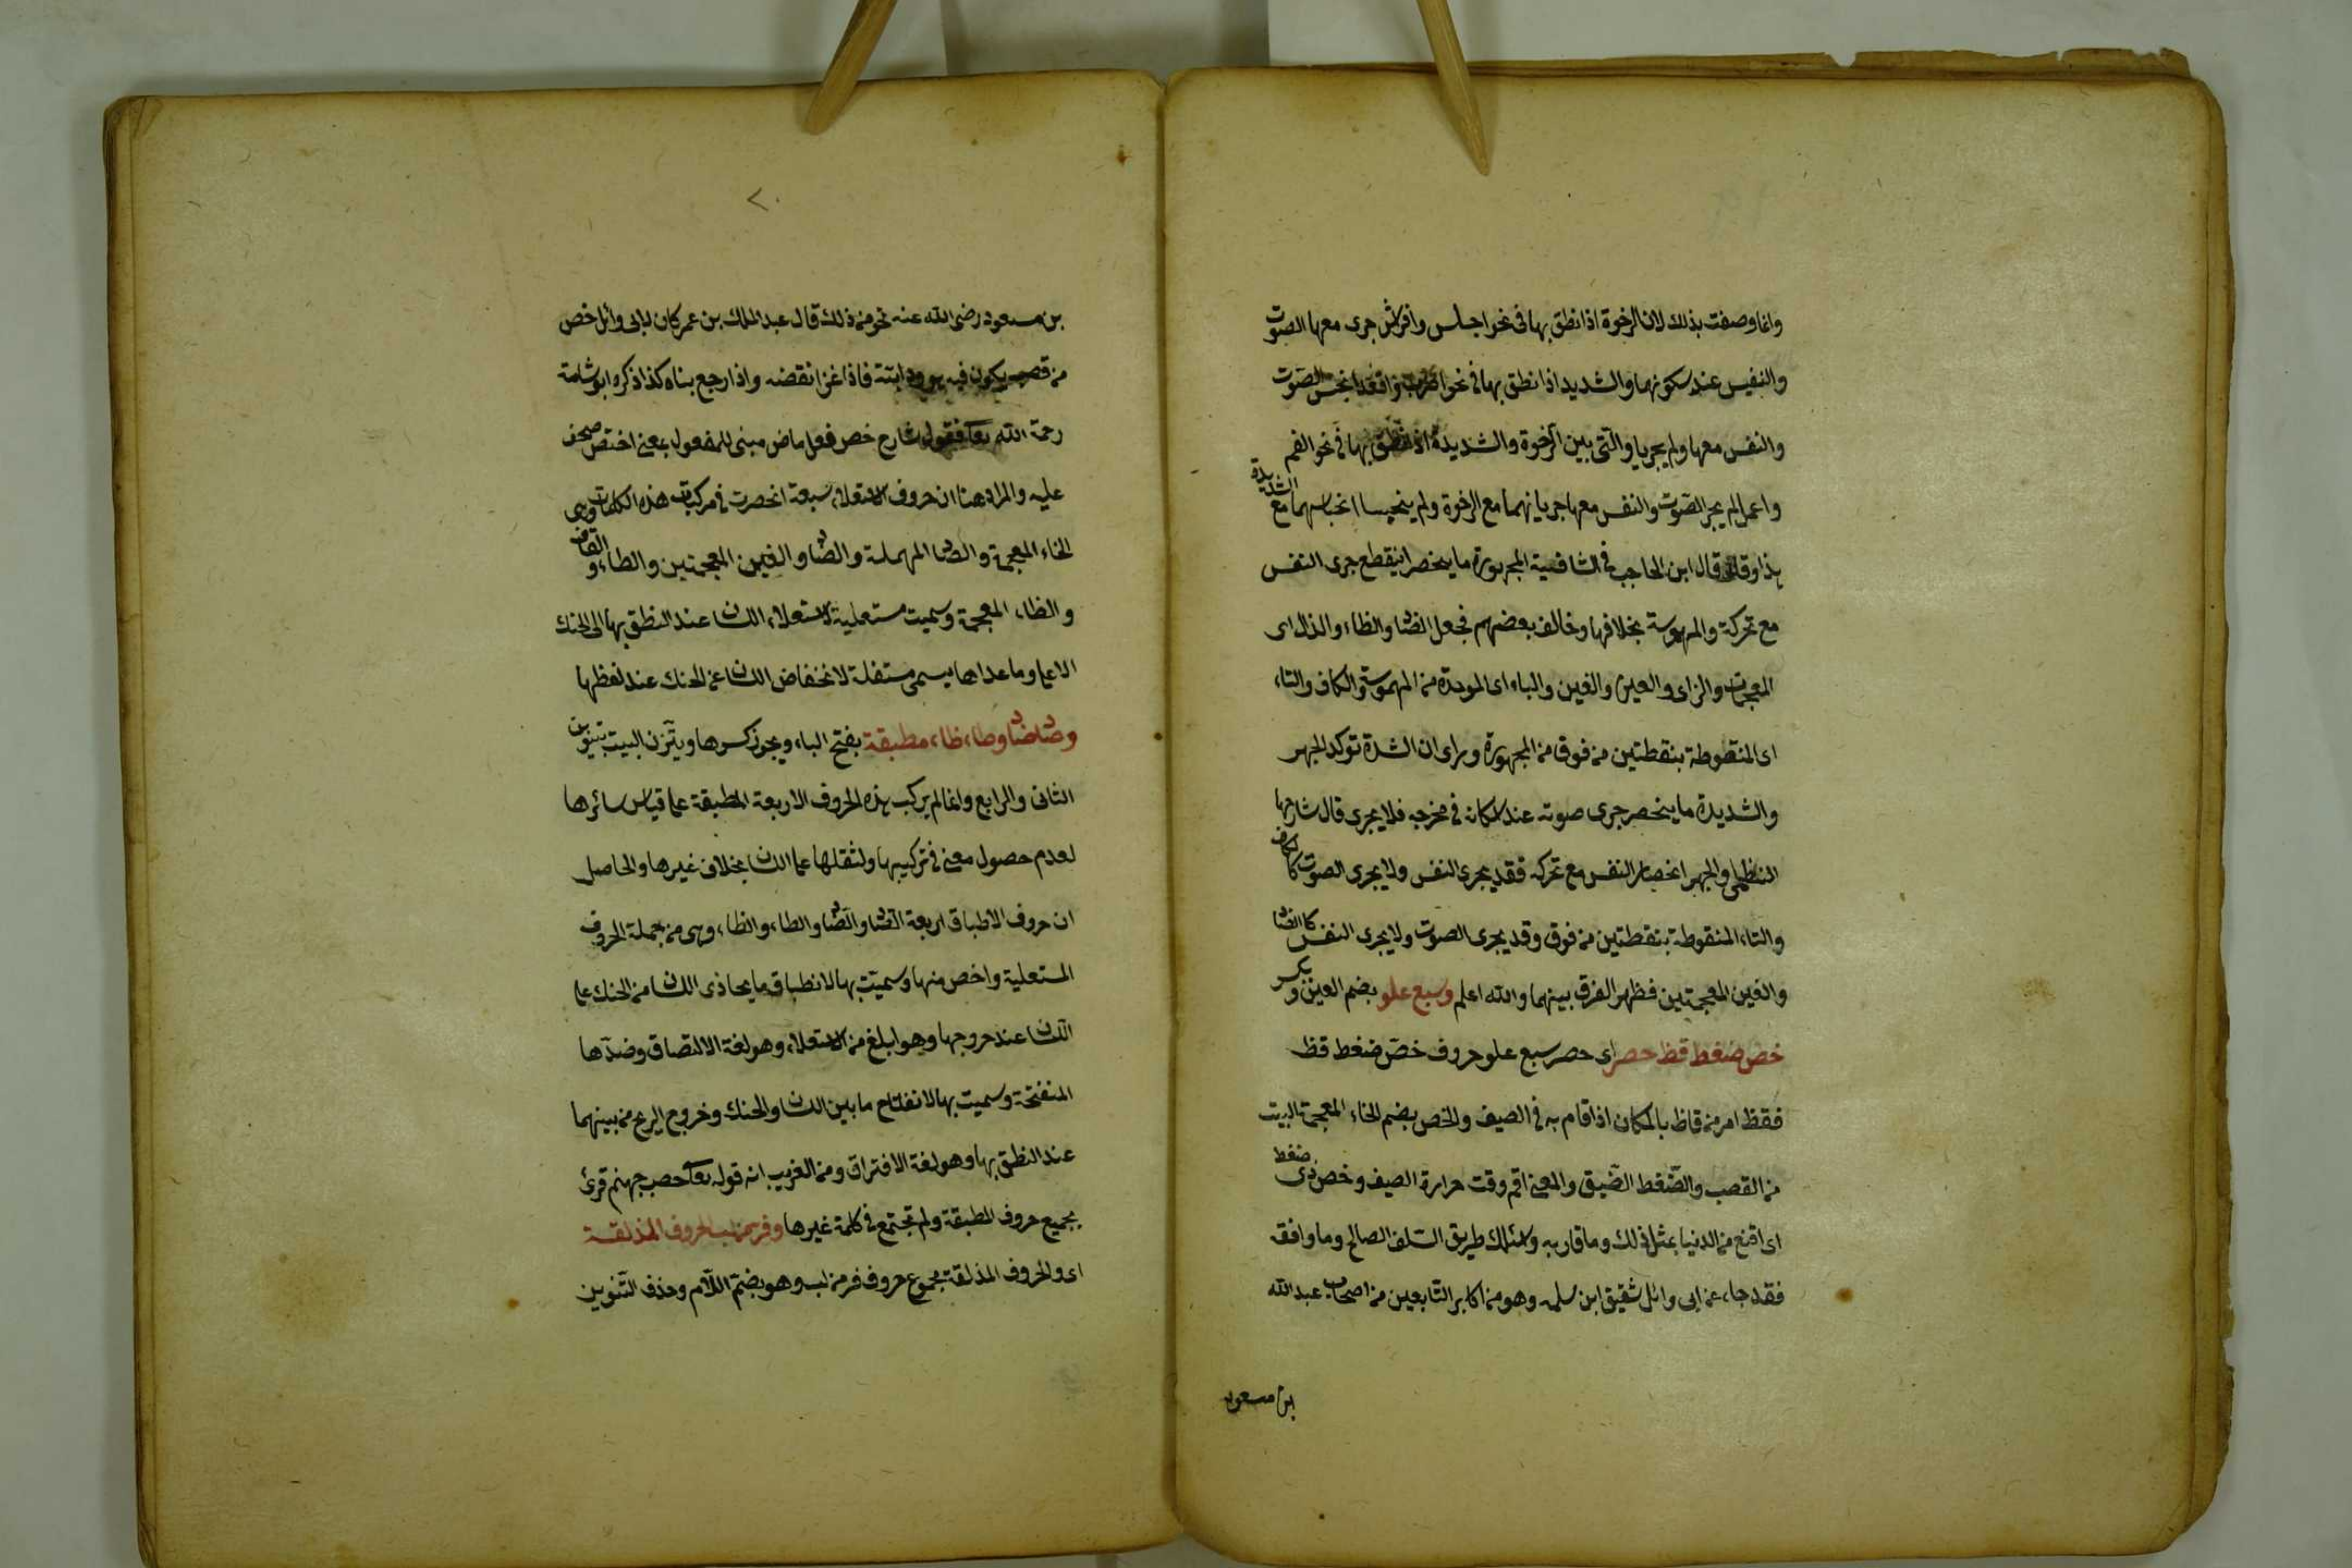 وانما وصفت بذلك لان الرخوة اذا نطق بها في نحو اجلس وافرش جرى معها الصوت
والنفس عند سكونها والشديد اذا نطق بها في نحو اضرب واقعد انحبس الصوت
والنفس معها ولم يجريا والتي بين الرخوة والشديدة اذا نطق بها في نحو انعم
واعمل لم يجر الصوت والنفس معها جريانهما مع الرخوة ولم ينحبسا انحباسهما مع الشديدة
هذا وقد قال ابن الحاجب في الشافية المجهورة ما ينحصر اينقطع جرى النفس
مع تحركة والمهموسة بخلافها وخالف بعضهم فجعل الضاد والظاء والذال اى
المعجمات والزاى والعين والغين والباء اى الموحدة من المهموسة والكاف والتاء
اى المنقوطة بنقطتين من فوق من المجهورة وراى ان الشدة توكد الجهر
والشديدة ما ينحصر جرى صوته عند اسكانه في مخرجه فلا يجرى قال شارحها
النظامي والجهر انحصار النفس مع تحركه فقد يجرى النفس ولا يجرى الصوت كالكاف
والتاء المنقوطة بنقطتين من فوق وقد يجرى الصوت ولا يجرى النفس كالضاد
والغين المعجمتين فظهر الفرق بينهما والله اعلم وسبع علو بضم العين وبكسر
خص ضغط قظ حصر اى حصر سبع علو حروف خص ضغط قظ
فقظ امر من قاظ بالمكان اذا اقام به في الصيف والخص بضم الخاء المعجمة البيت
من القصب والضغط الضيق والمعنى اقم وقت حرارة الصيف وخص ذى ضغط
اى اقنع من الدنيا بمثل ذلك وما قاربه واسلك طريق السلف الصالح وما وافقه
فقد جاء عن ابى وائل شقيق ابن سلمه وهو من اكابر التابعين من اصحاب عبد الله
بن مسعود
٢٠
بن مسعود رضى الله عنه نحو من ذلك قال عبد الملك بن عمر كان لابى وائل خص
من قصب يكون فيه هو ودابته فاذا غزا نقضه واذا رجع بناه كذا ذكره ابو شامة
رحمة الله تعالى فقول شارح خص فعل ماض مبنى للمفعول بمعنى اختص
عليه والمراد هنا ان حروف الاستعلاء سبعة انحصرت في مركبات هذه الكلمات وهى
الخاء المعجمة والصاد المهملة والضاد والغين المعجمتين والطاء والقاف
والظاء المعجمة وسميت مستعلية لاستعلاء اللسان عند النطق بها الى الحنك
الاعلى وما عداها يسمى مستفلة لانخفاض اللسان عن الحنك عند لفظها
وصاد ضاد وطاء ظاء مطبقة بفتح الباء ويجوز كسرها ويتزن البيت بتنوين
الثانى والرابع وانما لم يركب هذه الحروف الاربعة المطبقة على قياس سائرها
لعدم حصول معنى في تركيبها ولثقلها على اللسان بخلاف غيرها والحاصل
ان حروف الاطباق اربعة الصاد والضاد والطاء والظاء وهى من جملة الحروف
المستعلية واخص منها وسميت بها لانطباق ما يحاذى اللسان من الحنك على
اللسان عند خروجها وهو ابلغ من الاستعلاء وهو لغة الالتصاق وضدها
المنفتحة وسميت بها لانفتاح ما بين اللسان والحنك وخروج الريح من بينهما
عند النطق بها وهو لغة الافتراق ومن الغريب انه قوله تعالى حصب جهنم قرئ
بجميع حروف المطبقة ولم تجتمع في كلمة غيرها وفر من لب الحروف المذلقة
اى والحروف المذلقة مجموع حروف فر من لب وهو بضم اللام وحذف التنوين